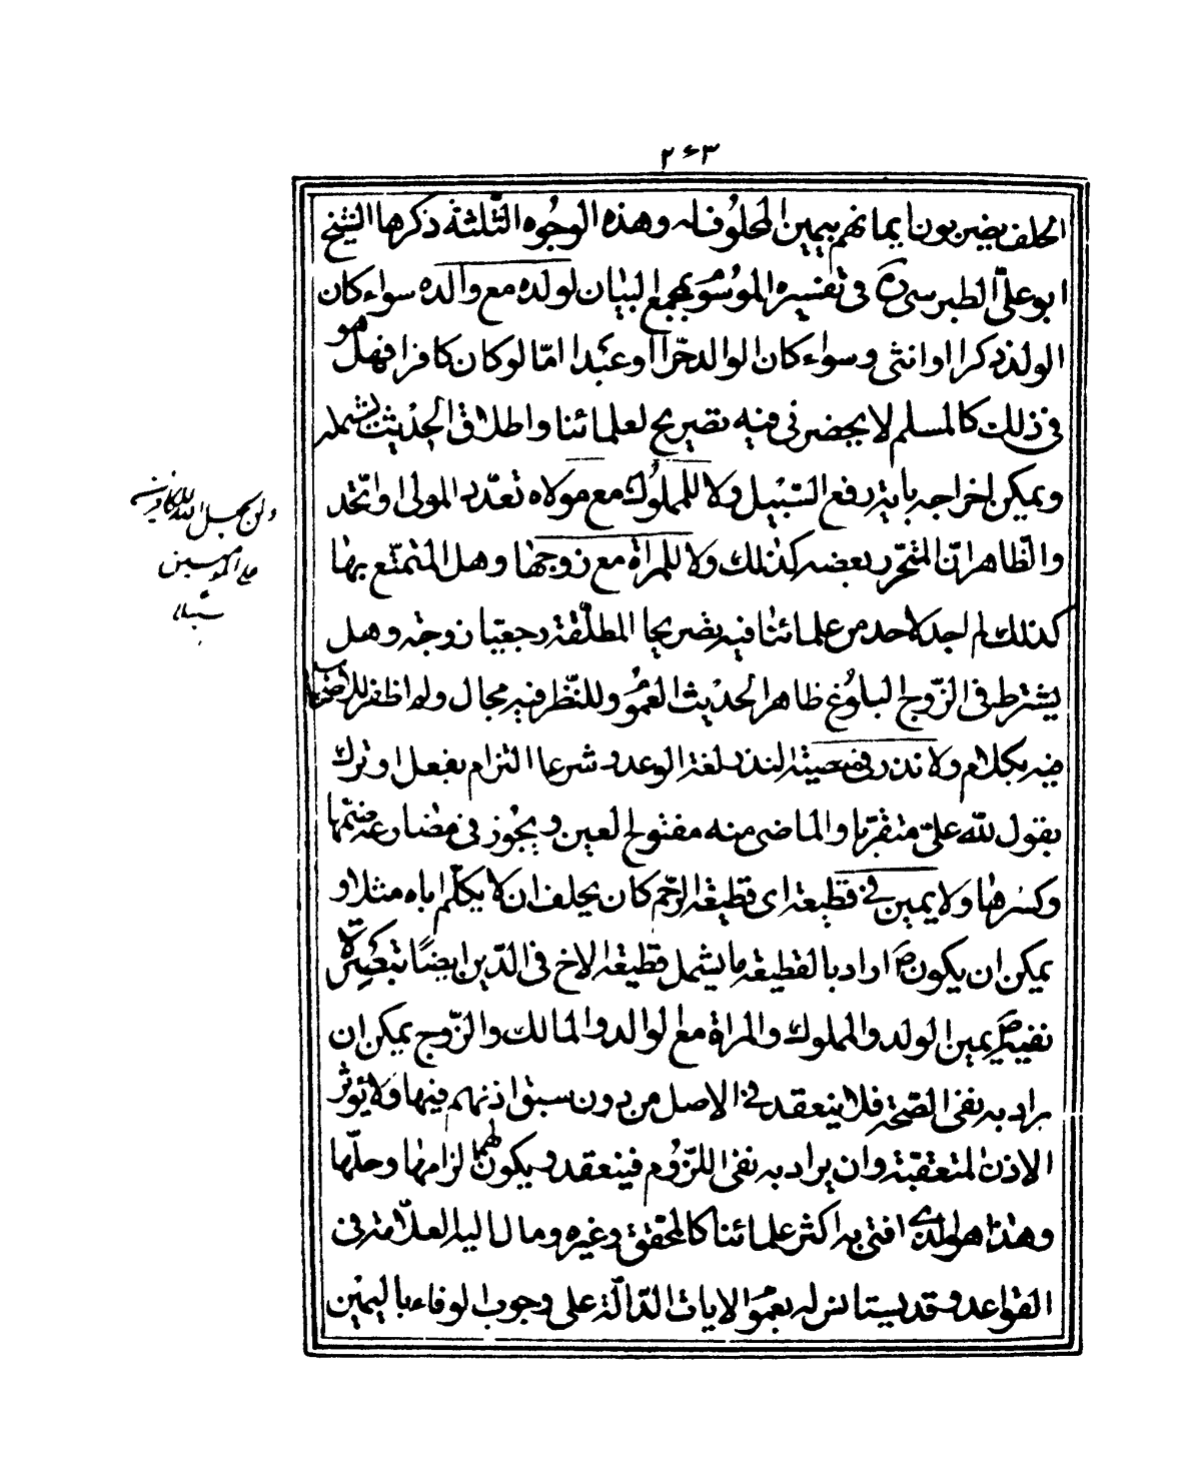 ٢٦٣
الحلف يضربون ايمانهم بيمين المحلوف له وهذه الوجوه الثّلثة ذكرها الشيخ
ابو علىّ الطبرسى ره فى تفسيره الموسُوم بمجمع البيان لولده مع والده سواء كان
الولد ذكرا او انثى وسواء كان الوالد حرّا او عبَدا امّا لو كان كافرا فهل هو
فى ذلك كالمسلم لا يحضرنى فيه تصريح لعلمائنا واطلاق الحديث يشمله
ويمكن اخراجه باية رفع السّبيل ولا للمملوك مع مولاه تعدّد المولى او اتّحد
والظاهر انّ المتحرّر بعضه كذلك ولا للمراة مع زوجها وهل المتمتّع بها
كذلك لم اجد لاحد من علمائنا فيه تصريحا المطلّقة رجعيّا زوجة وهل
يشترط فى الزّوج البلوُغ ظاهر الحديث العموُم وللنّظر فيه مجال ولم اظفر للاصحاب
فيه بكلام ولا نذر فى معصية النذر لغة الوعد وشرعا التزام بفعل او ترك
بقول للّه علىّ متقرّبا والماضى منه مفتوح العين ويجُوز فى مضارعه ضمّها
وكسرها ولا يمين فى قطيعة اى قطيعة الرّحم كان يحلف ان لا يكلّم اباه مثلا او
يمكن ان يكون ص اراد بالقطيعة ما يشمل قطيعة الاخ فى الدّين ايضًا تبصرة
نفيه ص يمين الولد والمملوك والمراة مع الوالد والمالك والزّوج يمكن ان
يراد به نفى الصّحة فلا ينعقد فى الاصل من دون سبق اذنهم فيها ولا يؤثّر
الاذن المتعقبّة وان يراد به نفى اللزّوُم فينعقد ويكون لهما الزامها وحلّها
وهذا هو الذى افتى به اكثر علمائنا كالمحقق وغيره ومال اليه العلّامة فى
القواعد وقد يستانس له بعموُم الايات الدّالّة على وجوب الوفاء باليمين
ولن يجعل الله للكافرين
على المؤمنين
سبيلا